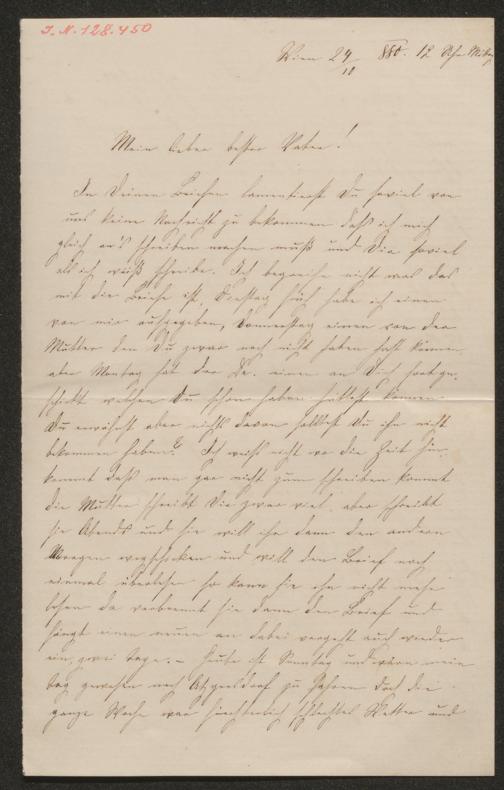 I. N. 128.450
Wien 24/10 880. 12 Uhr Mittag
Mein lieber bester Vater!
In Deinen Briefen lamentirst Du soviel von
uns keine Nachricht zu bekommen daß ich mich
gleich an's schreiben machen muß und Dir soviel
als ich weiß schreibe. Ich begreife nicht was das
mit die Briefe ist, Dienstag früh habe ich einen
von mir aufgegeben, Donnerstag einen von der
Mutter den Du zwar noch nicht haben hast können
aber Montag hat der Dr. einen an Dich fortge-
schickt welchen Du schon haben hättest können
Du erwähnst aber nichts davon solltest Du ihn nicht
bekommen haben? Ich weiß nicht wo die Zeit hin-
kommt daß man gar nicht zum schreiben kommt
die Mutter schreibt Dir zwar viel, aber schreibt
sie Abends und sie will ihn dann den andern
Morgen wegschicken und will den Brief noch
einmal überlesen so kann sie ihn nicht mehr
lesen da verbrennt sie dann den Brief und
fängt einen neuen an dabei vergeht auch wieder
ein, zwei Tage. – Heute ist Sonntag und wäre mein
Tag gewesen nach Atzgersdorf zu fahren doch die
ganze Woche war fürchterlich schlechtes Wetter und